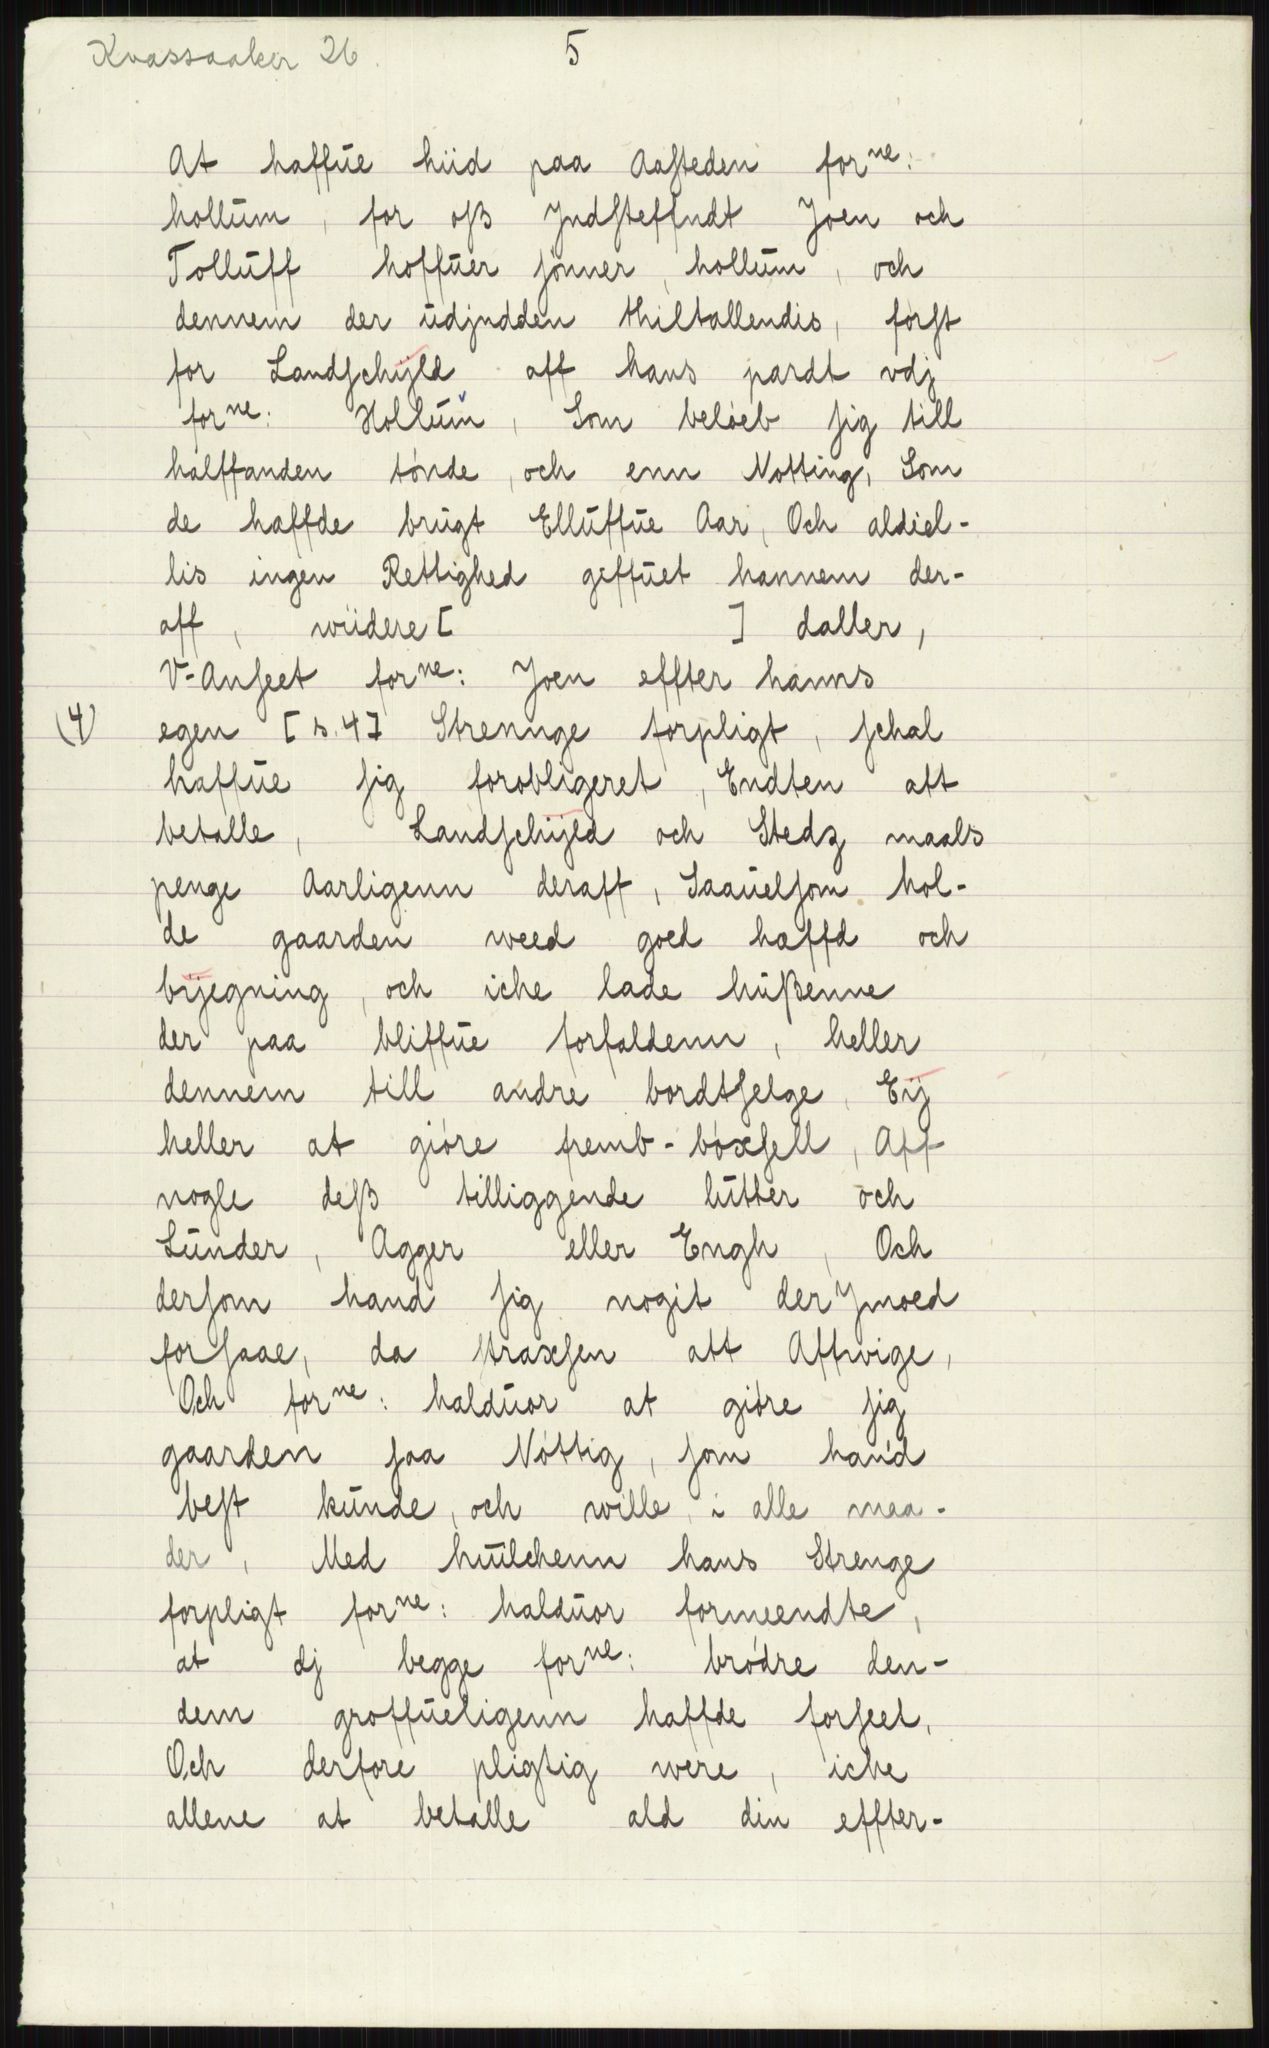 Kvassaaker 26.
5
At haffue hiid paa Aasteden for ne:
hollum, for oß Jndsteffndt Joen och
Tolluff hoffuer sönner, hollum, och
dennem der udjndden thiltallendis, först
for Landschÿld aff hans pardt vdj
for ne: Hollum, Som belöeb sig till
halffanden tönde, och enn Notting, Som
de haffde brugt Elluffue Aar, Och aldiel-
lis ingen Rettighed geffuet hannem der-
aff, wiidere [ ] daller,
V-Anseet for ne: Joen effter hanns
(4) egen [s. 4] Strennge forpligt, schal
haffue sig forobligeret, Endten att
betalle, Landschÿld och Stedz maals
penge Aarligenn deraff, Saauelsom hol-
de gaarden weed goed haffd och
bÿegning, och iche lade hußenne
der paa bliffue forfaldenn, heller
dennem till andre bordtselge, Eÿ
heller at giöre fremb-böxsell, Aff
nogle deß tilliggende lutter och
Lunder, Agger eller Engh, Och
dersom hand sig nogit der Jmoed
forsaae, da straxsen att Affwige,
Och for ne: halduor at giöre sig
gaarden saa Nöttig, som hand
best kunde, och wille, i alle maa-
der, Med huilchenn hans Strenge
forpligt for ne: halduor formeendte,
at dj begge for ne: brödre den-
dem groffueligenn haffde forseet,
Och derfore pligtig were, iche
allene at betalle ald din effter-